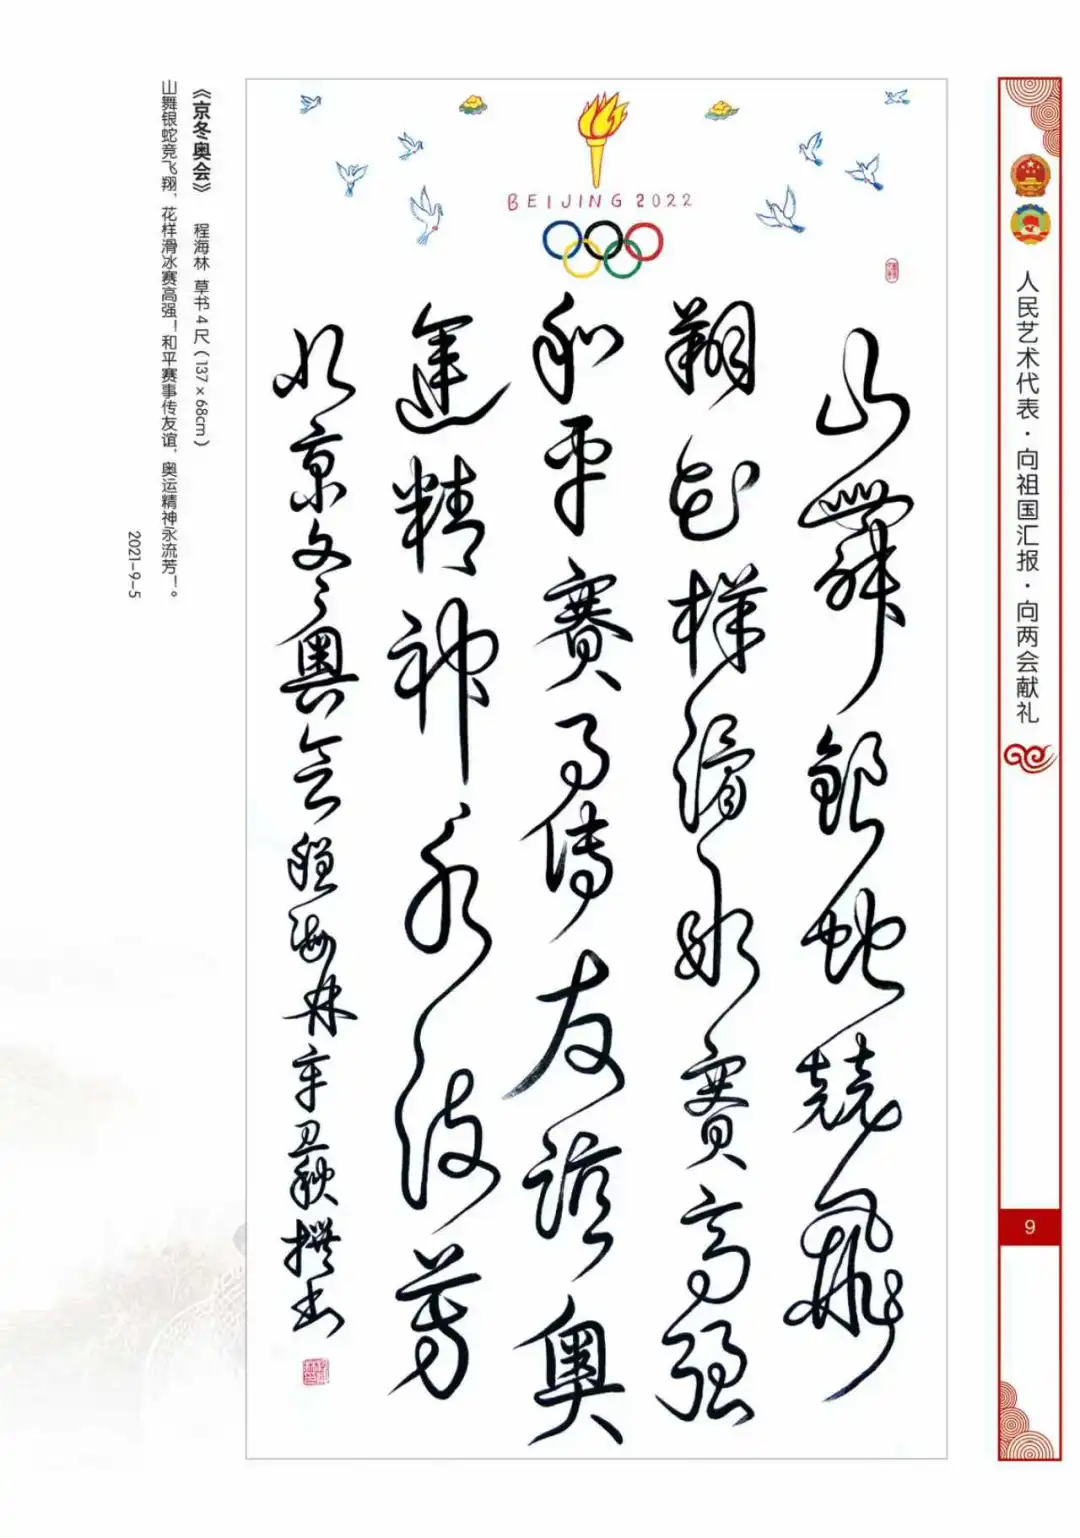 人民艺术代表·向祖国汇报·向两会献礼
9
BEIJING 2022
山舞銀蛇競飛
翔花样滑冰賽高强
和平賽事傳友誼奥
運精神永流芳
北京冬奥会程海林辛丑秋撰书
《京冬奥会》 程海林 草书4尺（137×68cm）
山舞银蛇竞飞翔，花样滑冰赛高强！和平赛事传友谊，奥运精神永流芳！。
2021-9-5